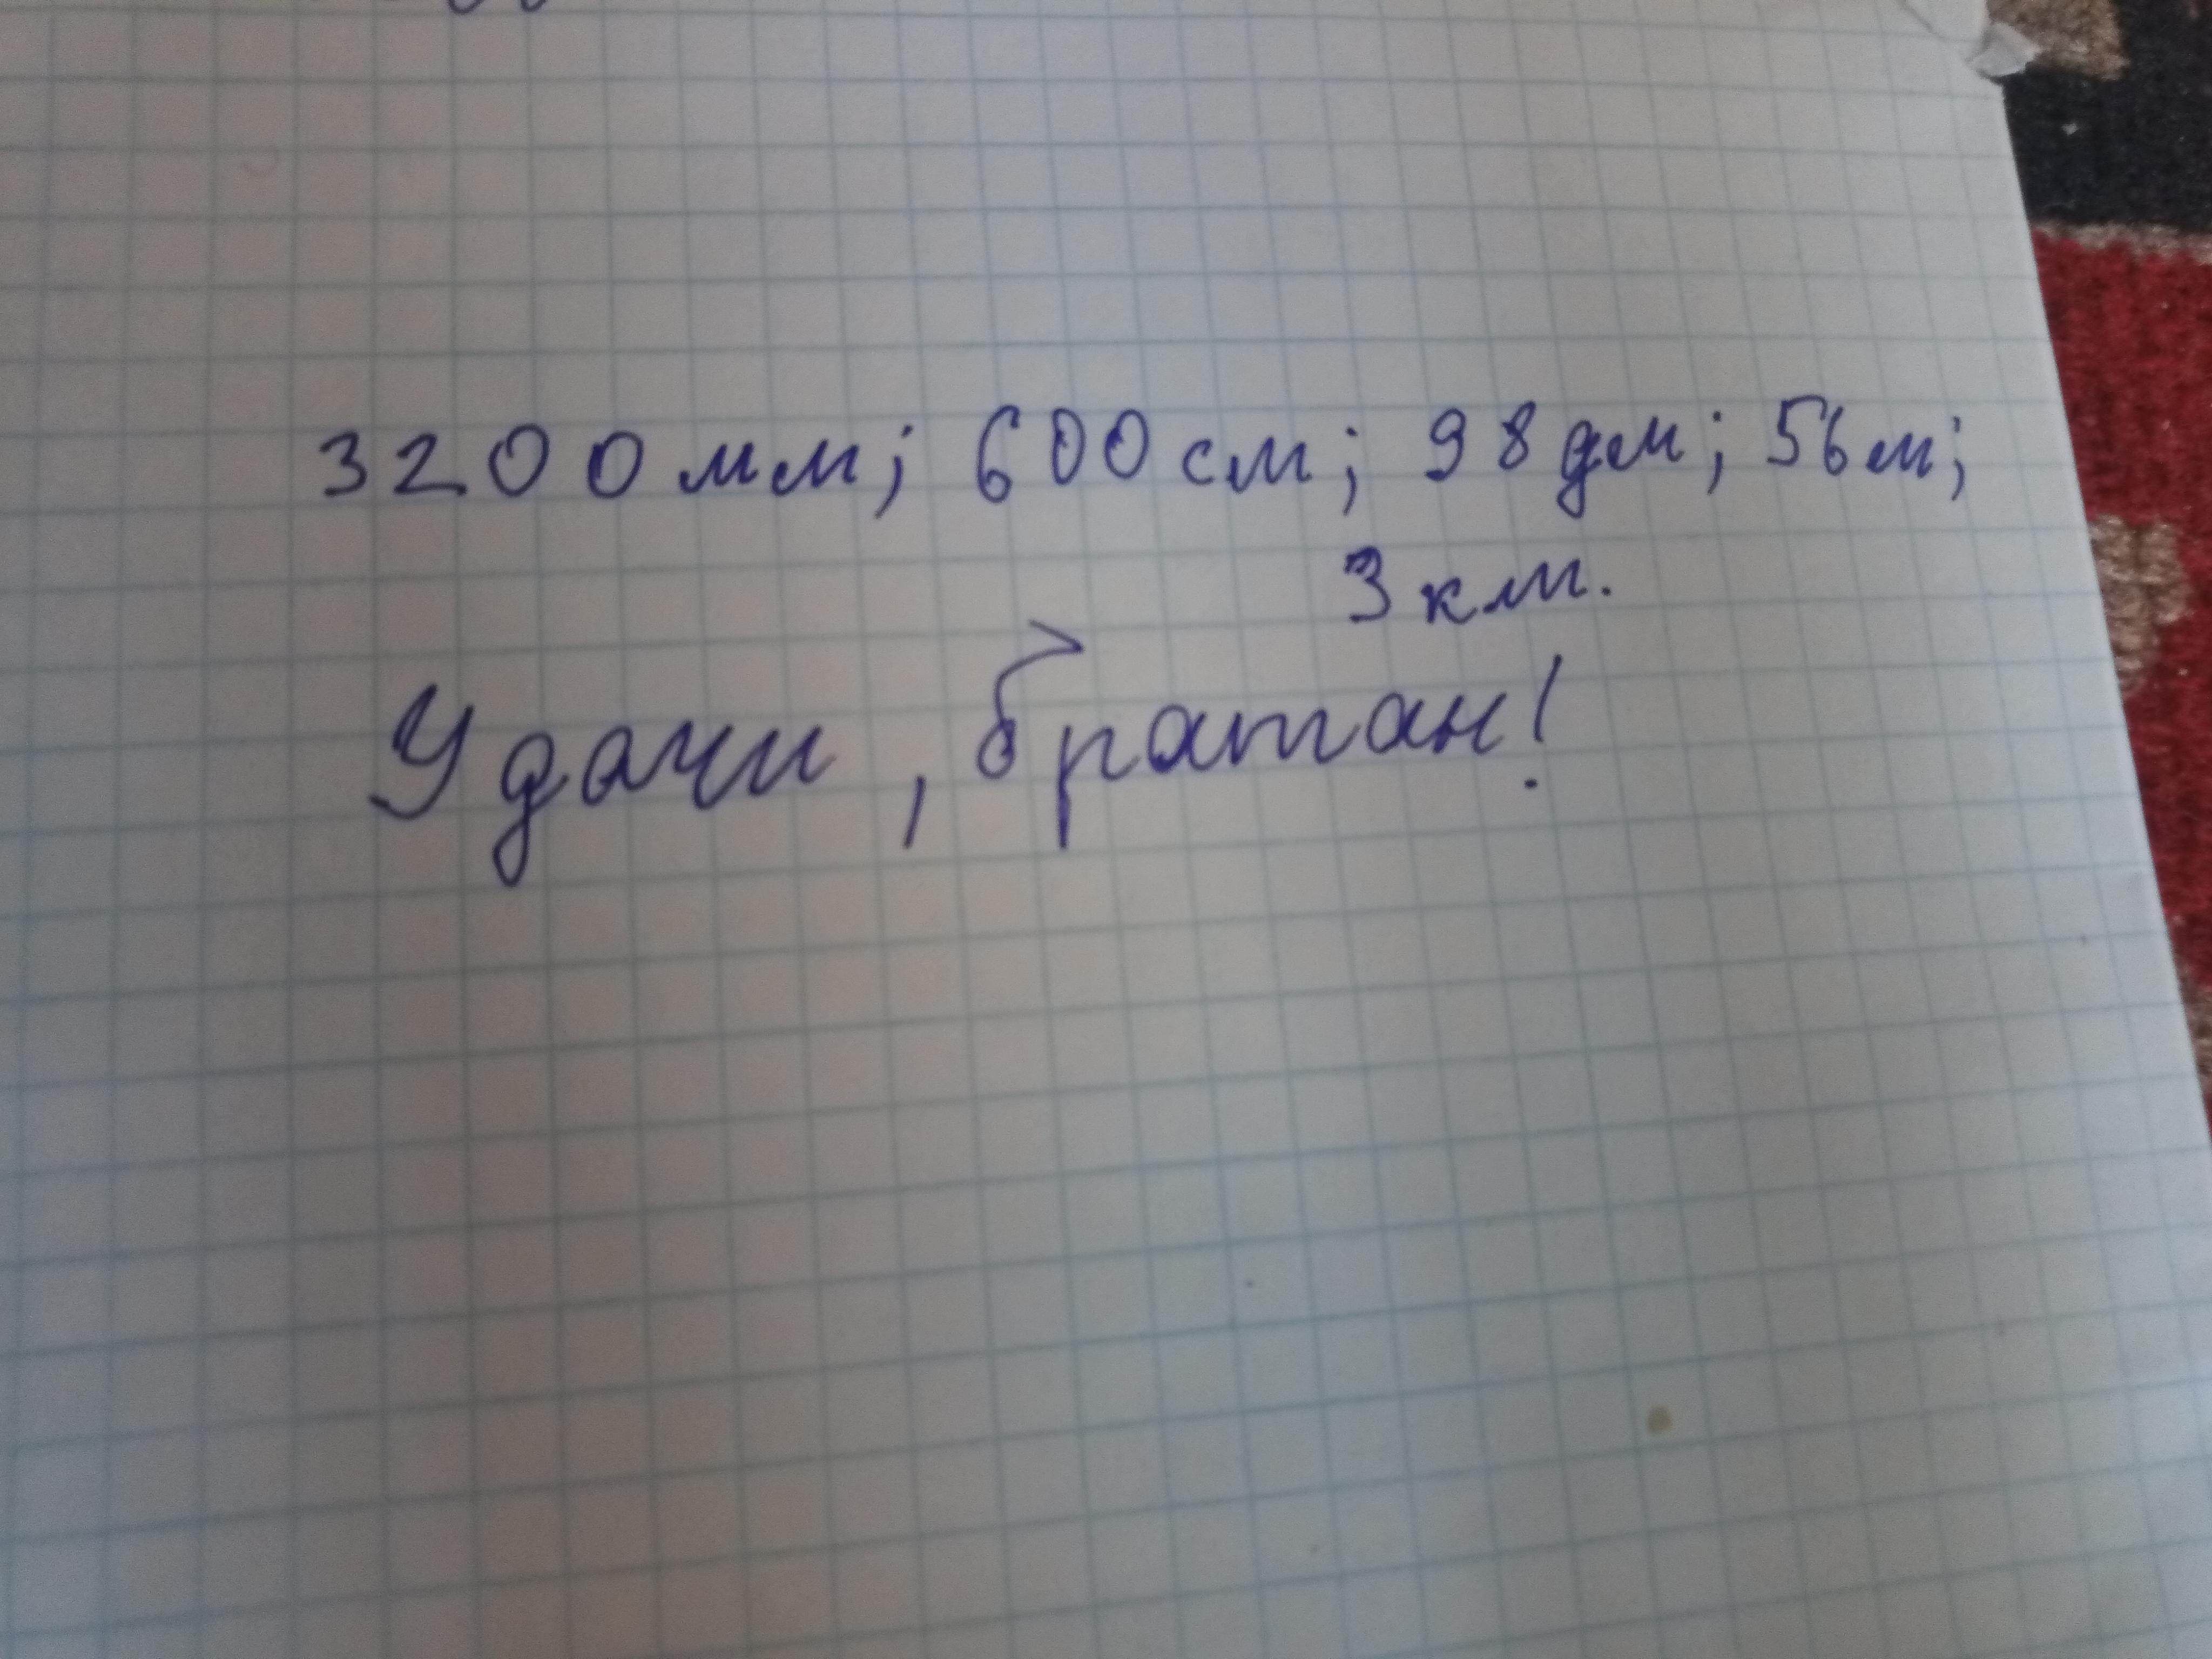 3200 мм; 600 см; 98 дм; 56 м;
3 км.
Удачи, братан!